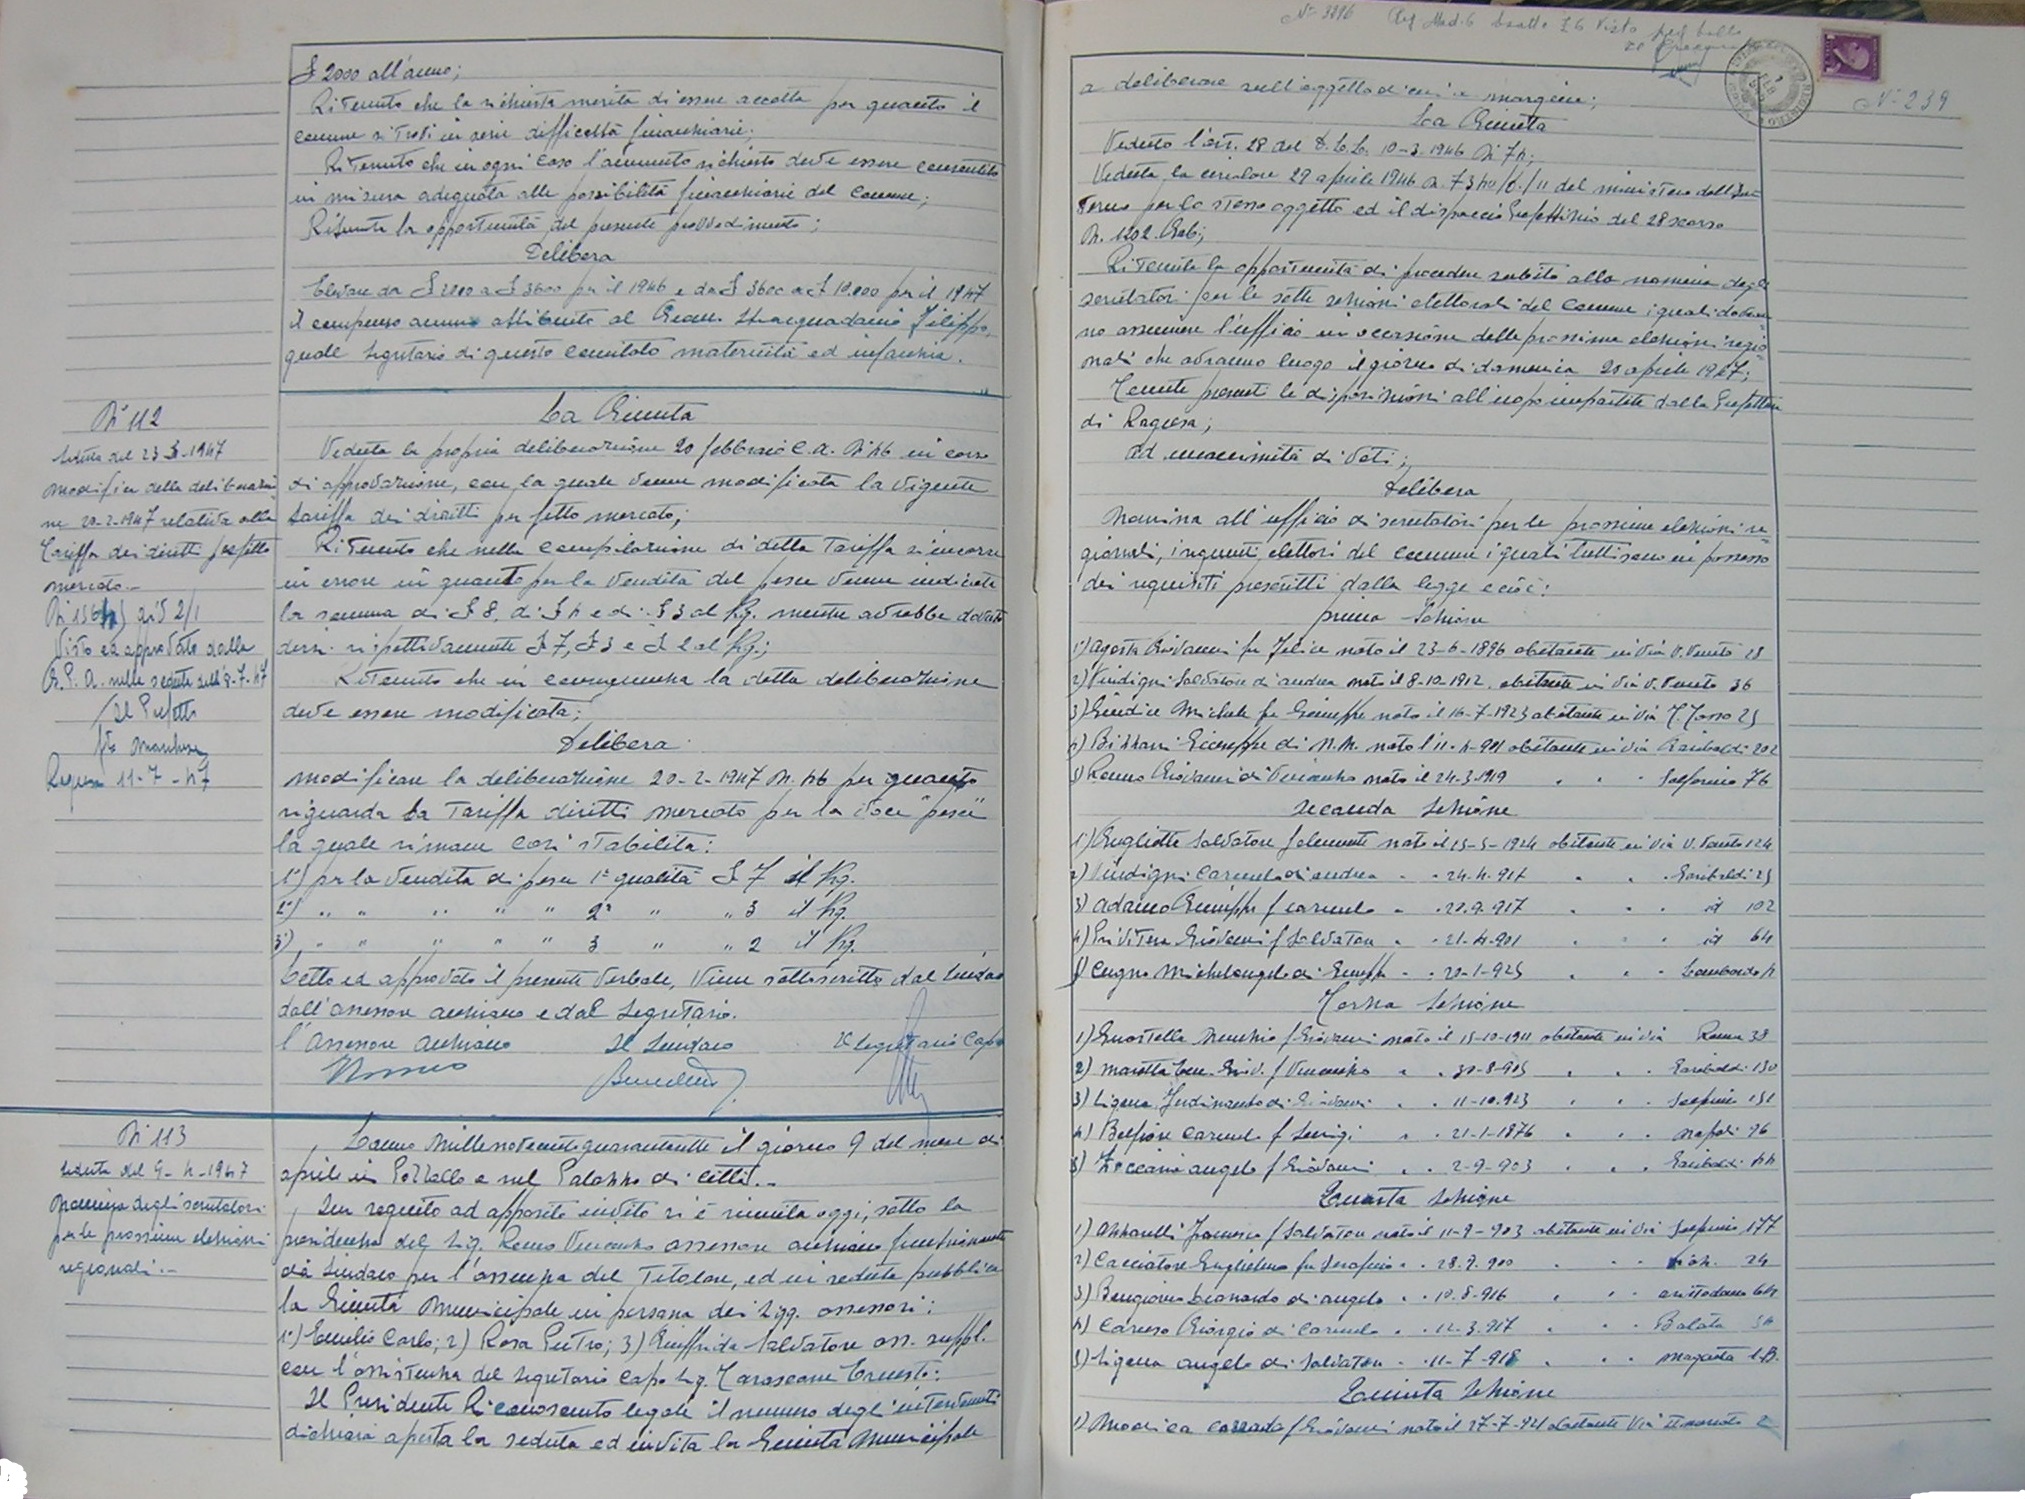 £ 2000 all'anno;
Ritenuto che la richiesta merita di essere accolta per quanto il
comune si trovi in serie difficoltà finanziarie;
Ritenuto che in ogni caso l'aumento richiesto deve essere consentito
in misura adeguata alle possibilità finanziarie del Comune;
Ritenuta la opportunità del presente provvedimento;
Delibera
Elevare da £ 2000 a £ 3600 per il 1946 e da £ 3600 a £ 10.000 per il 1947
il compenso annuo attribuito al Stracquadanio Filippo,
quale Segretario di questo Comitato maternità ed infanzia.
N° 112
Seduta del 23-3-1947
Modifica della deliberazio
ne 20-2-1947 relativa alla
Tariffa dei diritti per fitto
mercato.-
Div 2/1
Visto ed approvato dalla
G.P.A. nella seduta dell'8-7-47
Il Prefetto
Ragusa 11-7-47
La Giunta
Veduta la propria deliberazione 20 febbraio c.a. N 46 in corso
di approvazione, con la quale venne modificata la vigente
tariffa dei diritti per fitto mercato;
Ritenuto che nella compilazione di detta Tariffa si incorse
in errore in quanto per la vendita del pesce venne indicata
la somma di £ 8, di £ 4 e di £ 3 al Kg. mentre avrebbe dovuto
dirsi rispettivamente £ 7, £ 3 e £ 2 al Kg.;
Ritenuto che in conseguenza la detta deliberazione
deve essere modificata;
Delibera
Modificare la deliberazione 20-2-1947 N. 46 per quanto
riguarda la Tariffa diritti mercato per la voce "pesce"
la quale rimane così stabilita:
1°) per la vendita di pesce 1ª qualità £ 7 il Kg.
2°) " " " " " 2ª " " 3 il Kg.
3°) " " " " " 3 " " 2 il Kg.
Letto ed approvato il presente verbale, viene sottoscritto dal Sindaco
dall'assessore anziano e dal Segretario.
l'Assessore anziano Il Sindaco Il Segretario Capo
N 113
Seduta del 9-4-1947
Nomina degli scrutatori
per le prossime elezioni
regionali.-
L'anno millenovecentoquarantasette il giorno 9 del mese di
aprile in Pozzallo e nel Palazzo di città.-
In seguito ad apposito invito si è riunita oggi, sotto la
presidenza del Sig. Romeo Vincenzo assessore anziano funzionante
da Sindaco per l'assenza del Titolare, ed in seduta pubblica
la Giunta Municipale in persona dei Sigg. assessori:
1°) Emilio Carlo; 2) Rosa Pietro; 3) Giuffrida Salvatore ass. suppl.
con l'assistenza del Segretario Capo Sig. Tarascone Ernesto:
Il Presidente Riconosciuto legale il numero degli intervenuti
dichiara aperta la seduta ed invita la Giunta Municipale
N° 239
a deliberare sull'oggetto di cui a margine;
La Giunta
Veduto l'art. 28 del D.L.L. 10-3-1946 N 74;
Veduta la circolare 29 aprile 1946 del ministero dell'In
terno per lo stesso oggetto ed il dispaccio Prefettizio del 28 scorso
N. 1202 Gab;
Ritenuta la opportunità di procedere subito alla nomina degli
scrutatori per le sette sezioni elettorali del Comune i quali dovran
no assumere l'ufficio in occasione delle prossime elezioni regio
nali che avranno luogo il giorno di domenica 20 aprile 1947;
Tenute presenti le disposizioni all'uopo impartite dalla Prefettura
di Ragusa;
ad unanimità di voti;
Delibera
Nomina all'ufficio di scrutatori per le prossime elezioni re
gionali, i seguenti elettori del comune i quali tutti sono in possesso
dei requisiti prescritti dalla legge e cioè:
prima Sezione
1°) Agosta Giovanni fu Felice nato il 23-6-1896 abitante in via V. Veneto 28
2) Vindigni Salvatore di Andrea nato il 8-10-1912 abitante in via V. Veneto 36
3) Giudice Michele fu Giuseppe nato il 16-7-1923 abitante in via T. Tasso 25
4) Giuseppe di N.N. nato l'11-4-901 abitante in via Garibaldi 202
5) Romeo Giovanni di Vincenzo nato il 24-3-1919 " " " Solferino 76
Seconda Sezione
1°) Salvatore f Clemente nato il 15-5-1924 abitante in via V. Veneto 124
2) Vindigni Carmelo di Andrea " " 24-4-917 " " " Garibaldi 25
3) Adamo Giuseppe f Carmelo " " 20-9-917 " " " id 102
4) Privitera Giovanni f Salvatore " " 21-4-901 " " " id 64
5) Cugno Michelangelo di Giuseppe " " 20-1-925 " " " Lombardo 4
Terza Sezione
1) f Giovanni nato il 15-10-1911 abitante in via Roma 38
2) Giov. f Vincenzo " " 30-8-905 " " " Garibaldi 130
3) Ligura Ferdinando di Giovanni " " 11-10-923 " " " Scipione 151
4) Belfiore Carmelo f Luigi " " 21-1-1876 " " " Napoli 96
5) Angelo f Giovanni " " 2-9-903 " " " Garibaldi 44
Quarta Sezione
1) Azzarelli Francesco f Salvatore nato il 11-9-903 abitante in via Scipione 177
2) Cacciatore Guglielmo fu Serafino " " 28-9-900 " " " 24
3) Bongiorno Leonardo di Angelo " " 10-8-916 " " " 64
4) Caruso Giorgio di Carmelo " " 12-3-917 " " " Balata 34
5) Ligura Angelo di Salvatore " " 11-7-918 " " " Magenta S.B.
Quinta Sezione
1) Modica f Giovanni nato il 27-7-921 abitante Via